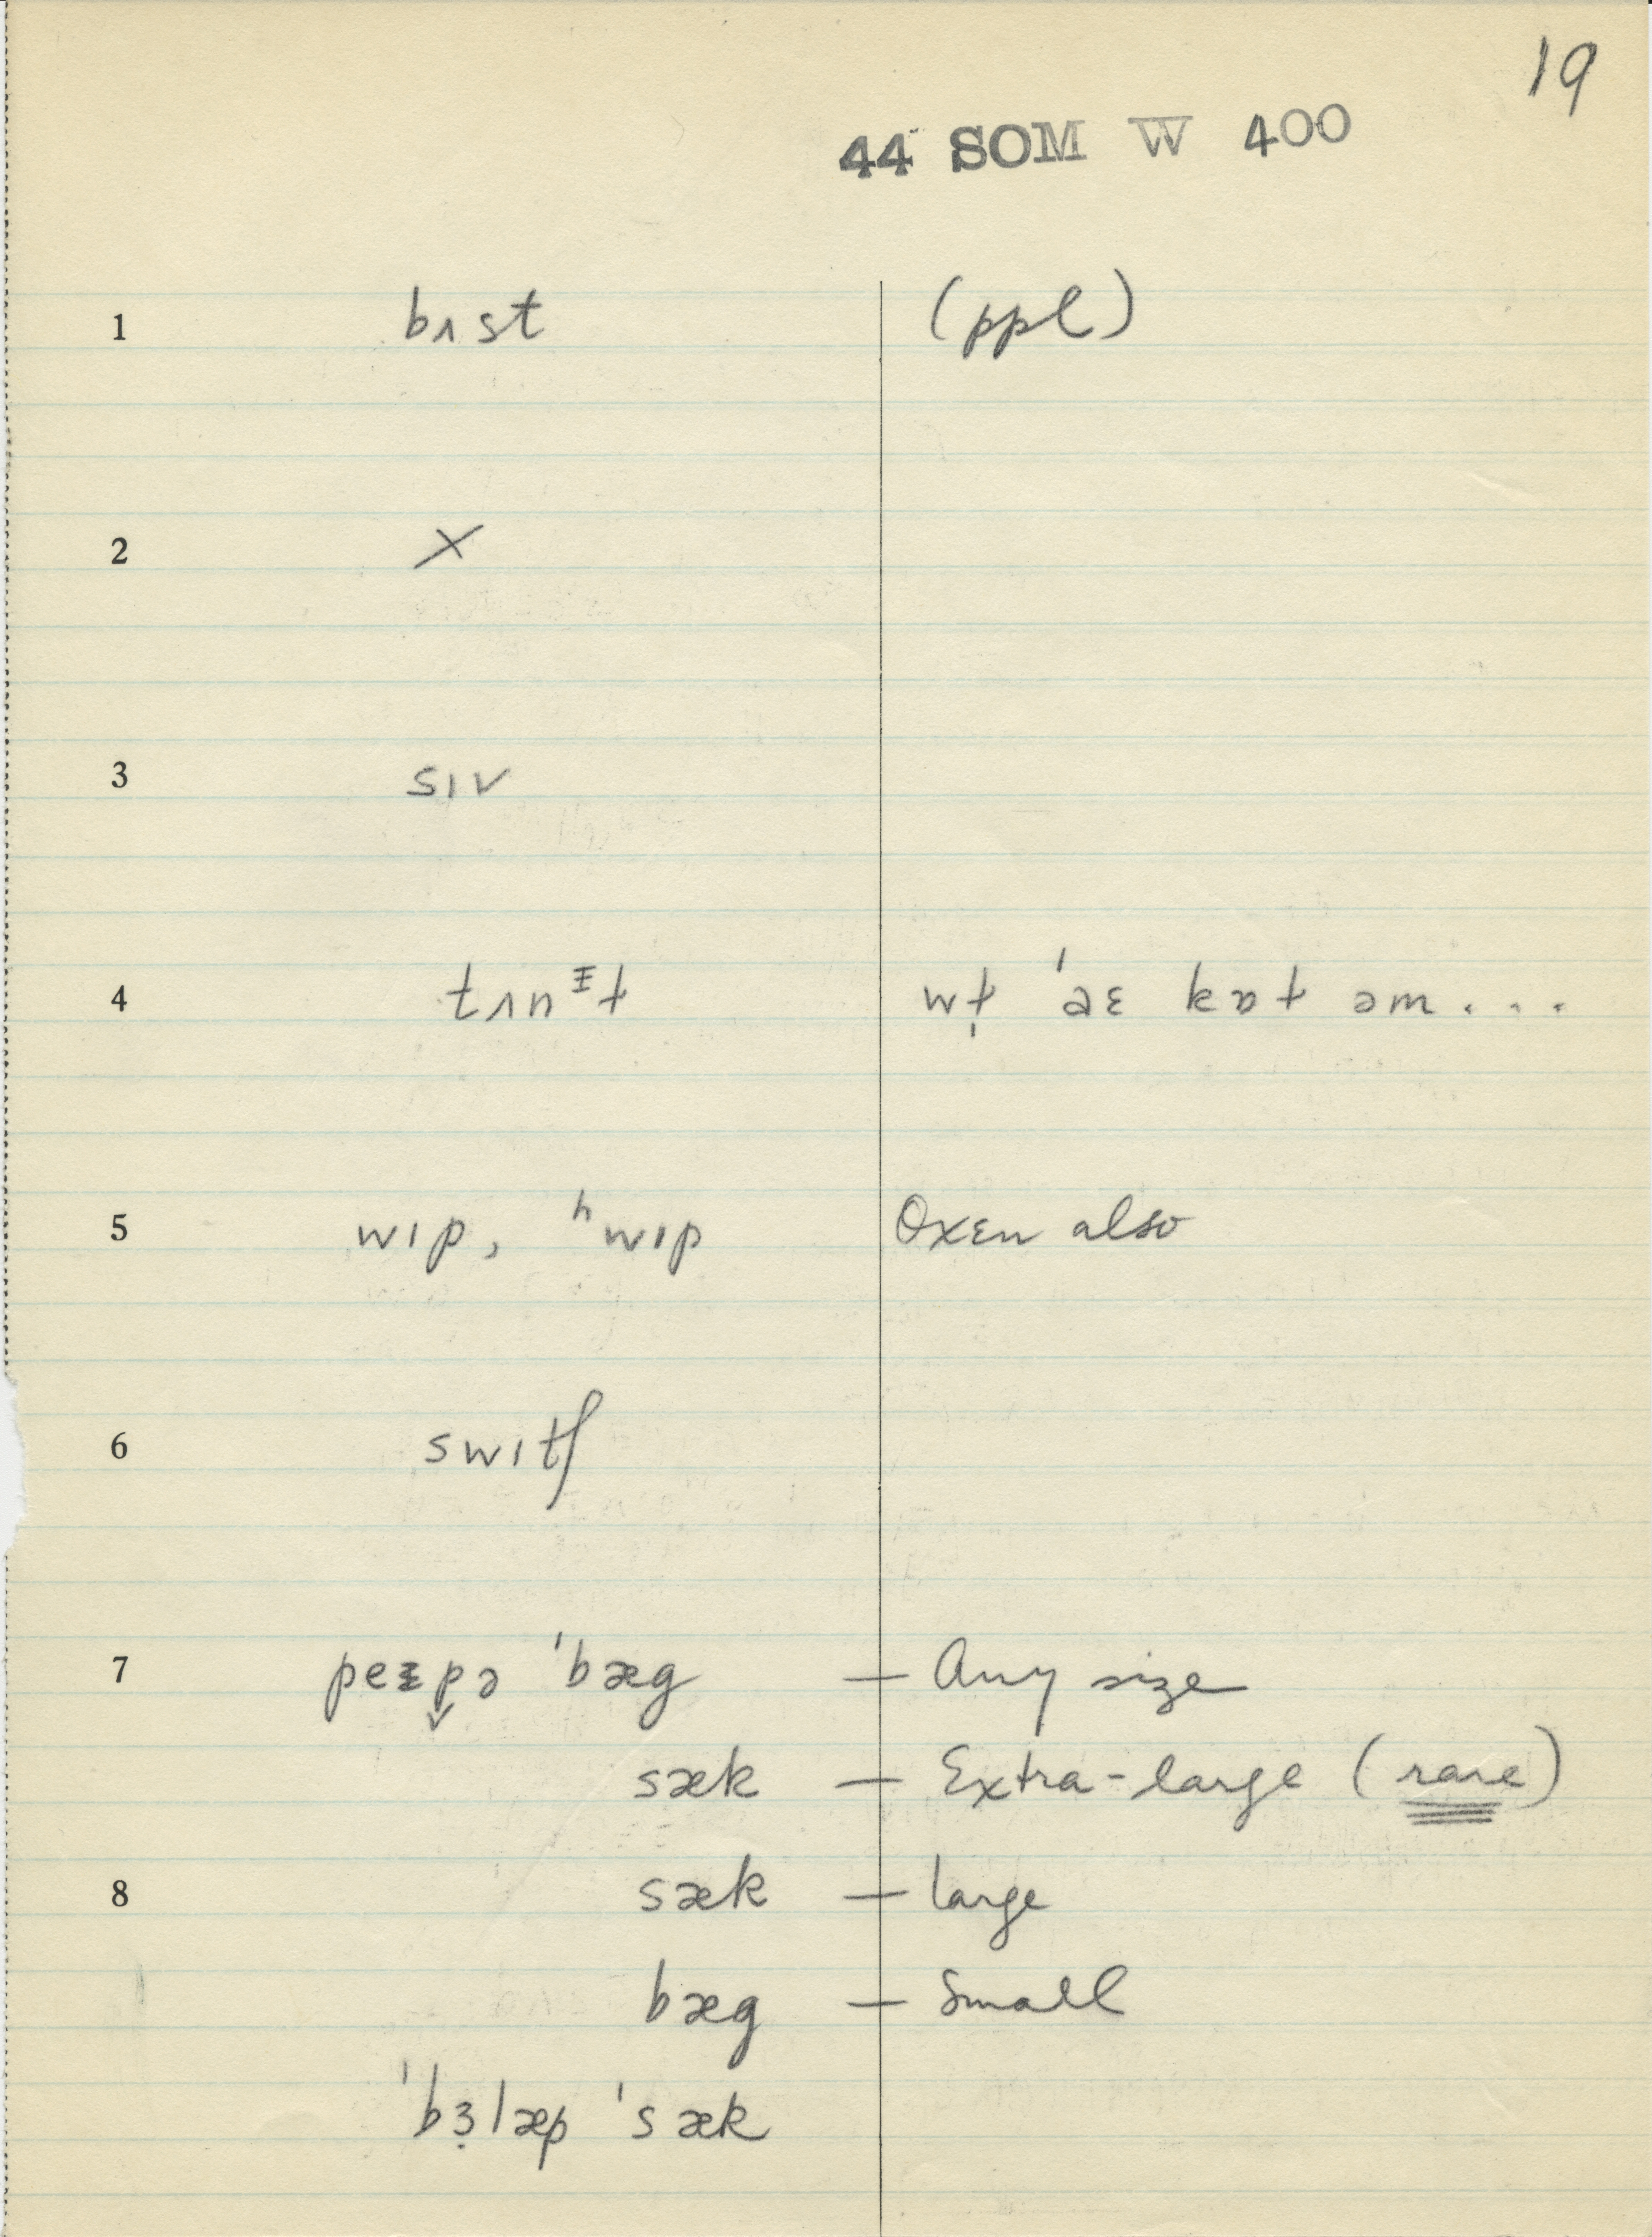 19
44 SOM W 400
1 bɪst (ppl)
2 X
3 sɪv
4
5 wɪp, ʰwɪp Oxen also
6 swɪtʃ
7 ˈbæg — Any size
sæk — Extra-large (rare)
8 sæk — large
bæg — Small
ˈbɜ̣læp ˈsæk